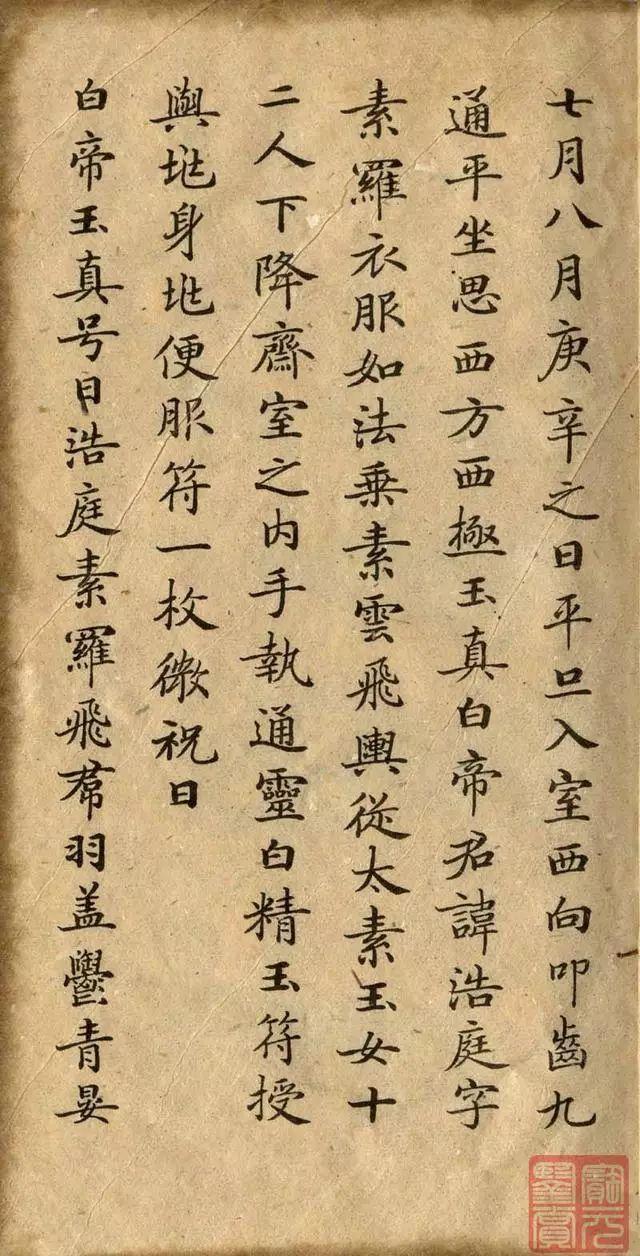 七月八月庚辛之日平旦入室西向叩齒九
通平坐思西方西極玉真白帝君諱浩庭字
素羅衣服如法乗素雲飛輿從太素玉女十
二人下降齋室之内手執通靈白精玉符授
與兆身兆便服符一枚微祝曰
白帝玉真号曰浩庭素羅飛帬羽盖鬱青